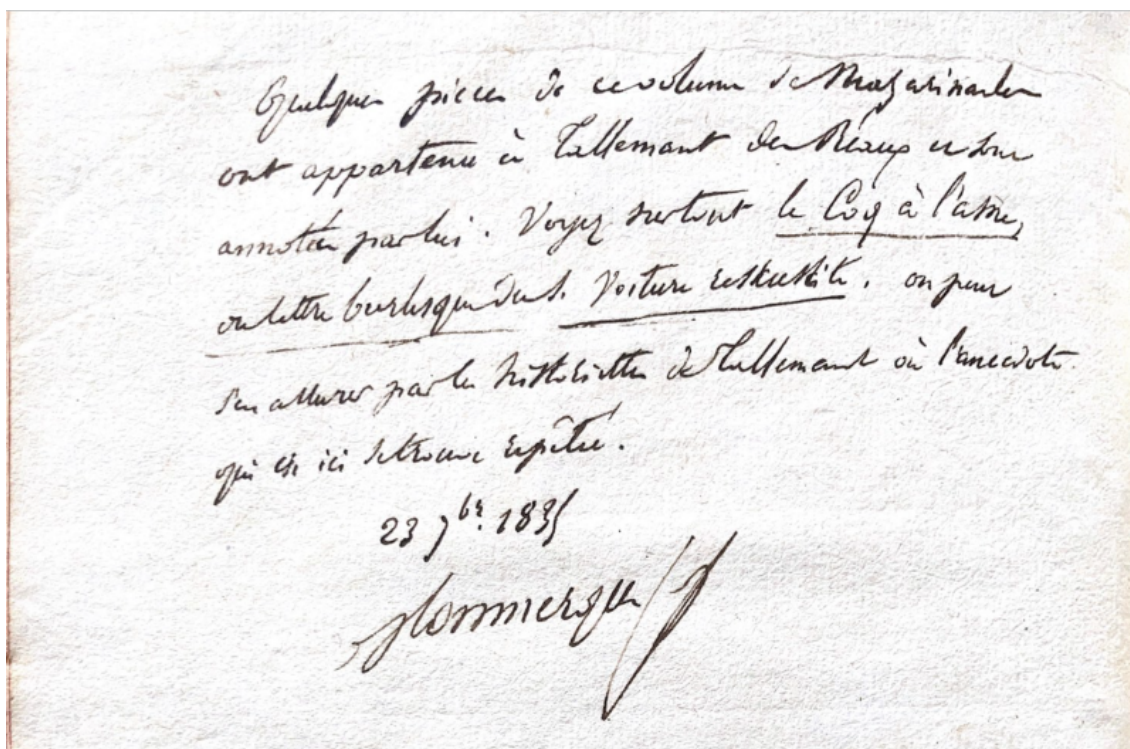 Quelques pieces de ce volume de Mazarinades
ont appartenu à Tallemant des Réaux et sont
annotées par lui. Voyez surtout le Coq à l'asne,
ou lettre burlesque du S. Voiture ressuscité. on peut
s'en assurer par les historiettes de Tallemant où l'anecdote
qui est ici se trouve répétée.
23 7bre. 1835
Monmerqué